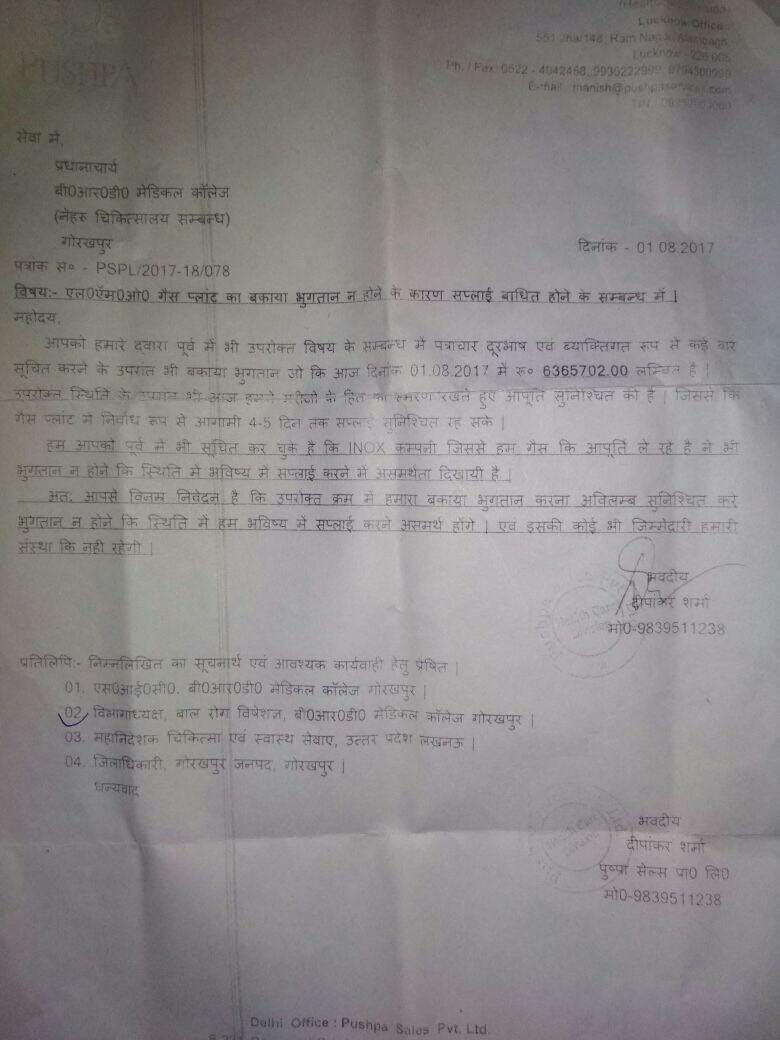 PUSHPA
Lucknow Office:
551 Jha/148, Ram Nagar, Alambagh,
Lucknow - 226 005
Ph. / Fax: 0522 - 4042468, 9930222999,
E-mail: manish@pushpaservices.com
सेवा में,
प्रधानाचार्य
बी0आर0डी0 मेडिकल कॉलेज
(नेहरु चिकित्सालय सम्बन्ध)
गोरखपुर
दिनांक - 01 08.2017
पत्राक स० - PSPL/2017-18/078
विषय:- एल0एॅम0ओ0 गैस प्लांट का बकाया भुगतान न होने के कारण सप्लाई बाधित होने के सम्बन्ध में |
महोदय,
आपको हमारे दवारा पूर्व में भी उपरोक्त विषय के सम्बन्ध में पत्राचार दूरभाष एवं ब्याक्तिगत रूप से कई बार
सूचित करने के उपरांत भी बकाया भुगतान जो कि आज दिनांक 01.08.2017 में रू० 6365702.00 लम्बित है |
उपरोक्त स्थिति के उपरांत भी आज हमने मरीजो के हित का स्मरण रखते हुए आपूर्ति सुनिश्चित की है | जिससे कि
गैस प्लांट में निर्वाध रूप से आगामी 4-5 दिन तक सप्लाई सुनिश्चित रह सके |
हम आपको पूर्व में भी सूचित कर चुके है कि INOX कम्पनी जिससे हम गैस कि आपूर्ति ले रहे है ने भी
भुगतान न होने कि स्थिति में भविष्य में सप्लाई करने में असमर्थता दिखायी है |
अत: आपसे विनम्र निवेदन है कि उपरोक्त क्रम में हमारा बकाया भुगतान करना अविलम्ब सुनिश्चित करे
भुगतान न होने कि स्थिति में हम भविष्य में सप्लाई करने असमर्थ होंगे | एवं इसकी कोई भी जिम्मेदारी हमारी
संस्था कि नही रहेगी |
भवदीय
दीपांकर शर्मा
मो0-9839511238
प्रतिलिपि:- निम्नलिखित का सूचनार्थ एवं आवश्यक कार्यवाही हेतु प्रेषित |
01. एस0आई0सी0, बी0आर0डी0 मेडिकल कॉलेज गोरखपुर |
02, विभागाध्यक्ष, बाल रोग विषेशज्ञ, बी0आर0डी0 मेडिकल कॉलेज गोरखपुर |
03. महानिदेशक चिकित्सा एवं स्वास्थ सेवाए, उत्तर प्रदेश लखनऊ |
04. जिलाधिकारी, गोरखपुर जनपद, गोरखपुर |
धन्यवाद
भवदीय
दीपांकर शर्मा
पुष्पा सेल्स प्रा0 लि0
मो0-9839511238
Delhi Office : Pushpa Sales Pvt. Ltd.